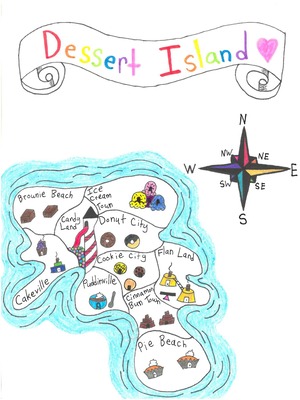 Dessert Island
N
NW
NE
W
E
SW
SE
S
Brownie Beach
Ice
Cream
Town
Candy
Land
Donut City
Cookie City
Flan Land
Cakeville
Puddinville
Cinnamon
Bun Town
Pie Beach